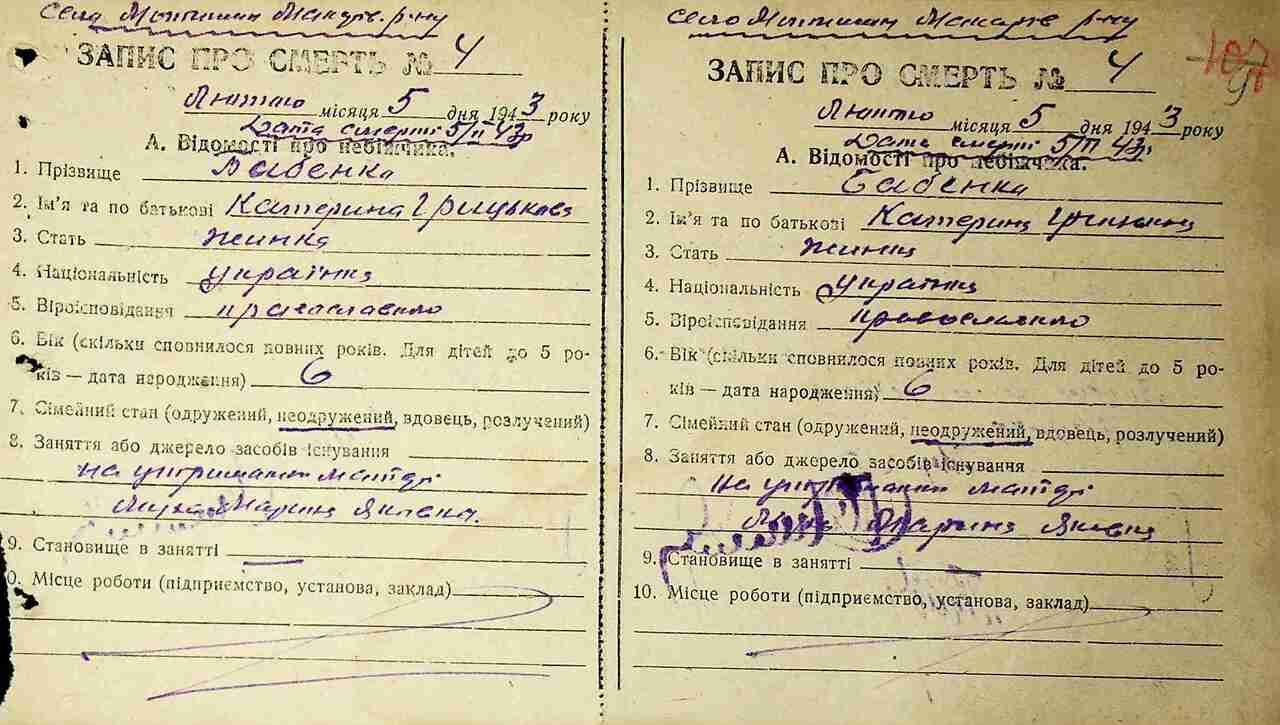 село Мотижин Макарів. р-ну
ЗАПИС ПРО СМЕРТЬ № 4
Лютого місяця 5 дня 1943 року
Дата смерті 5/II 43р
А. Відомості про небіжчика.
1. Прізвище Бабенко
2. Ім'я та по батькові Катерина Грицьков
3. Стать жинка
4. Національність українка
5. Віроісповідання православно
6. Вік (скільки сповнилося повних років. Для дітей до 5 ро-
ків — дата народження) 6
7. Сімейний стан (одружений, неодружений, вдовець, розлучений)
8. Заняття або джерело засобів існування
на утриманні матері
Марія Яковна.
9. Становище в занятті
0. Місце роботи (підприємство, установа, заклад)
село Мотижин Макарів р-ну
107
9
ЗАПИС ПРО СМЕРТЬ № 4
Лютого місяця 5 дня 1943 року
Дата смерті 5/II 43р
А. Відомості про небіжчика.
1. Прізвище Бабенко
2. Ім'я та по батькові Катерина
3. Стать жинка
4. Національність українка
5. Віроісповідання православно
6. Вік (скільки сповнилося повних років. Для дітей до 5 ро-
ків — дата народження) 6
7. Сімейний стан (одружений, неодружений, вдовець, розлучений)
8. Заняття або джерело засобів існування
на утриманні матері
9. Становище в занятті
10. Місце роботи (підприємство, установа, заклад)